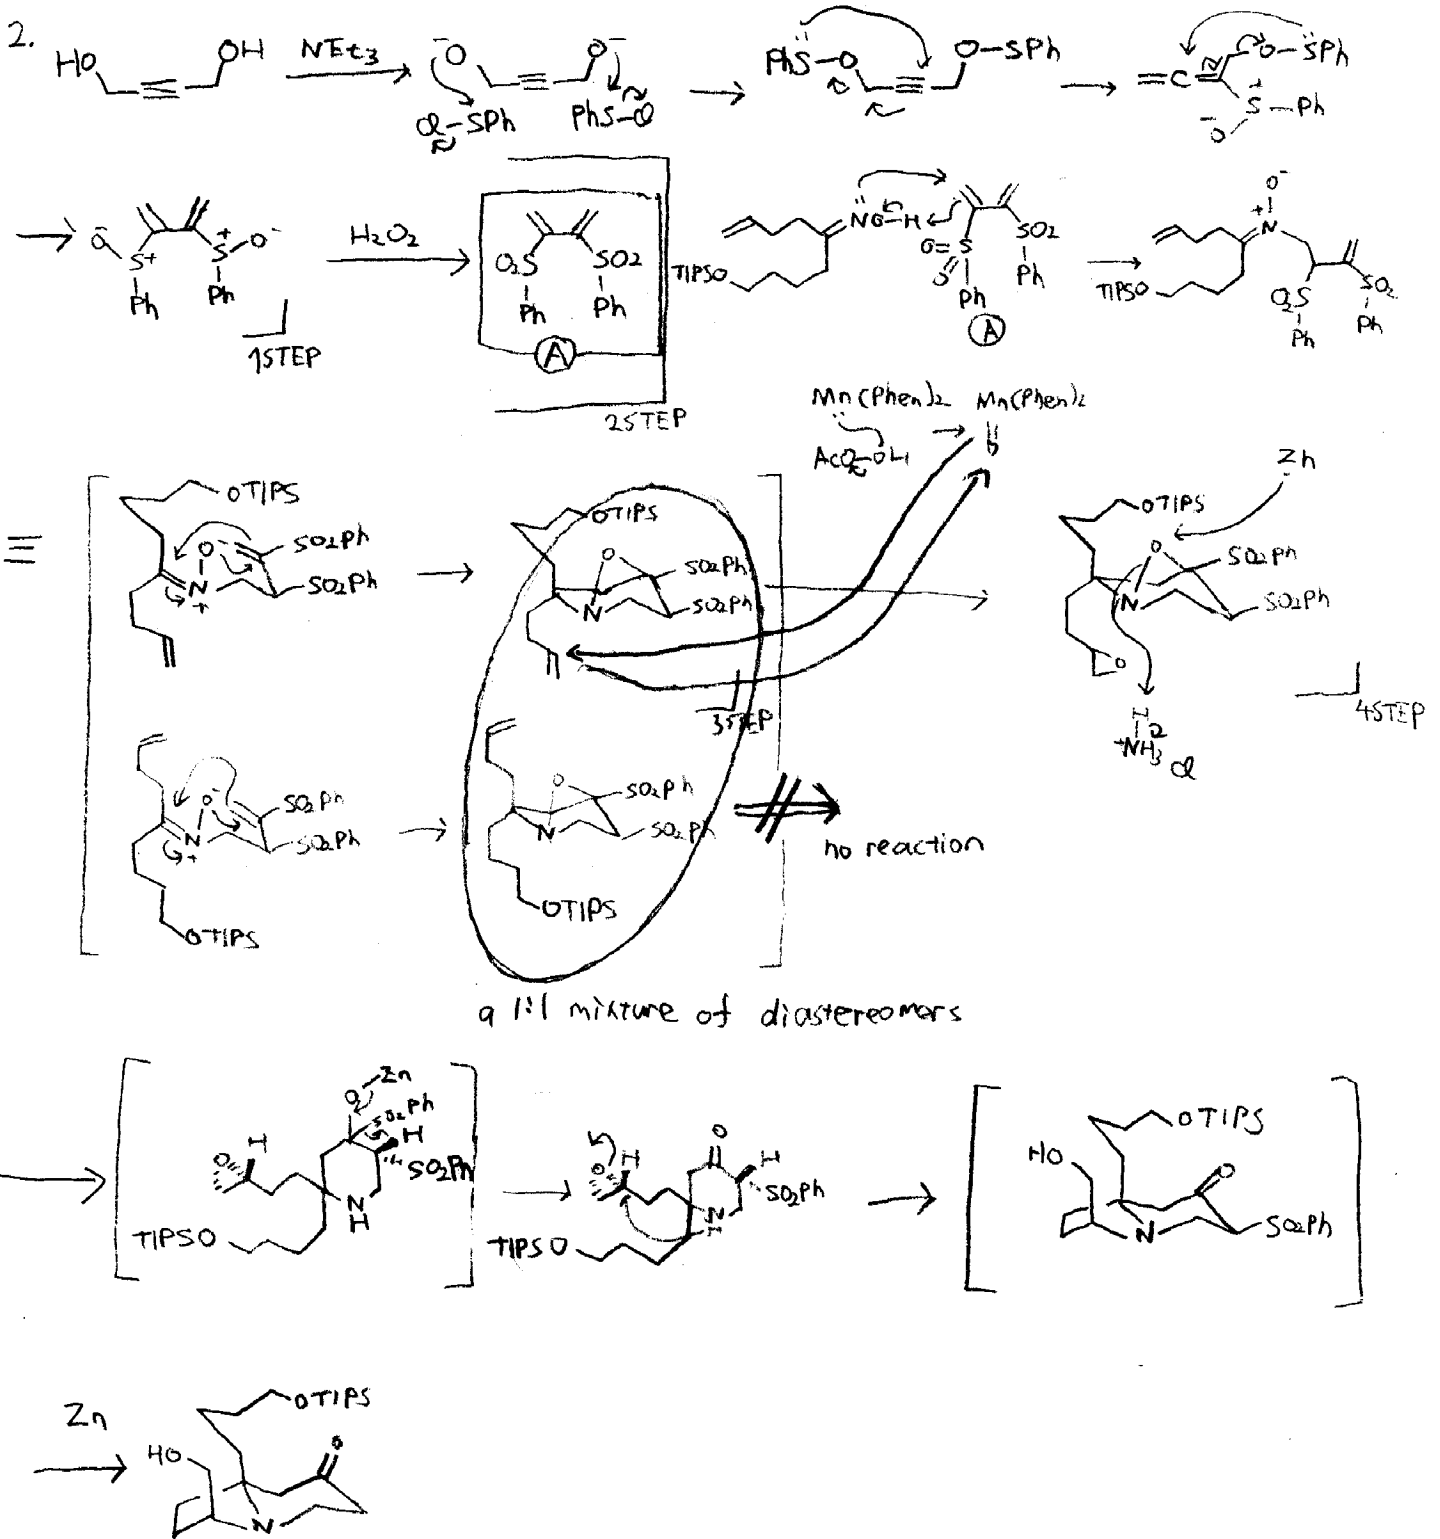 2.
HO OH NEt3 ⁻O O⁻ Cl-SPh PhS-Cl PhS-O O-SPh =C= O-SPh S⁺-Ph ⁻O
⁻O S⁺ Ph S⁺ O⁻ Ph H2O2 O2S SO2 Ph Ph TIPSO NO-H O=S=O SO2 Ph Ph TIPSO O⁻ N⁺ O2S Ph SO2 Ph
1STEP
A
A
2STEP
Mn(Phen)2 Mn(Phen)2
AcO-OH O
≡ OTIPS O N⁺ SO2Ph SO2Ph OTIPS O N SO2Ph SO2Ph OTIPS O N SO2Ph SO2Ph O Zn
3STEP
H
⁺NH3 Cl
4STEP
O⁻ N⁺ SO2Ph SO2Ph OTIPS O N SO2Ph SO2Ph OTIPS
no reaction
a 1:1 mixture of diastereomers
O H O-Zn SO2Ph H SO2Ph N H TIPSO
O H O H SO2Ph N H TIPSO
HO OTIPS O N SO2Ph
Zn
HO OTIPS O N